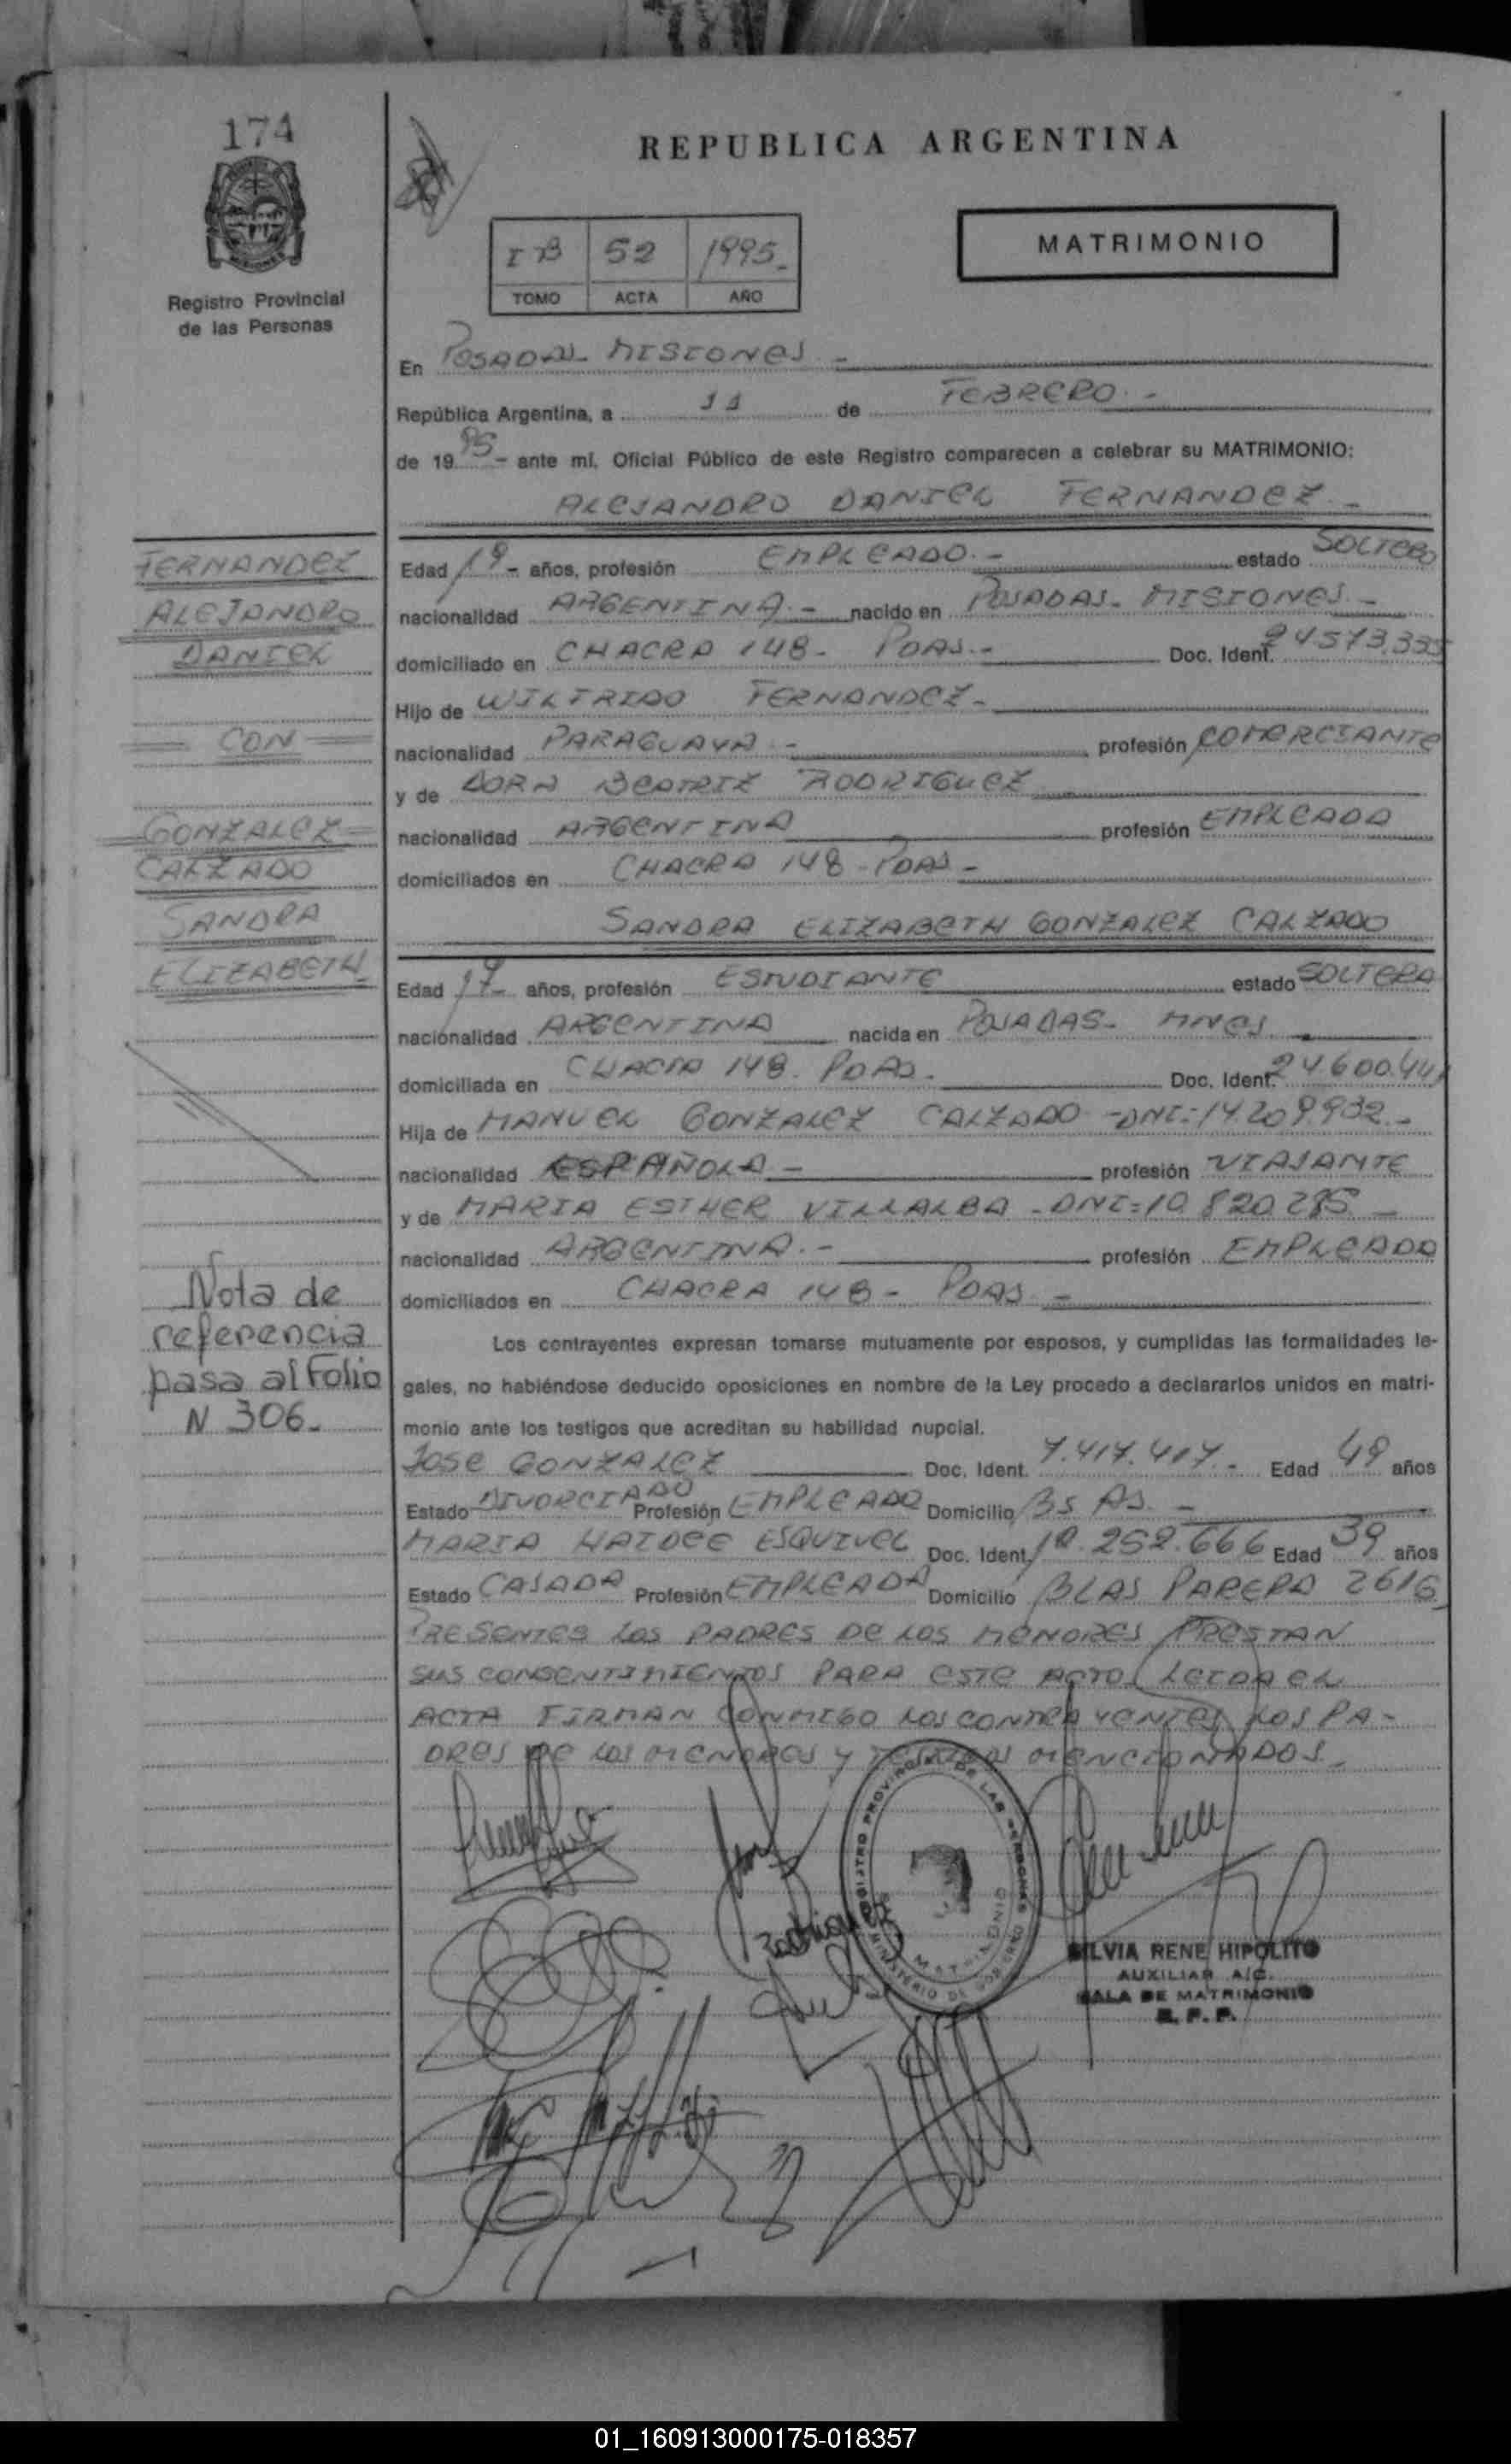 174
REPUBLICA ARGENTINA
I B 52 1995
TOMO ACTA AÑO
MATRIMONIO
Registro Provincial
de las Personas
En POSADAS MISIONES
República Argentina, a 11 de FEBRERO
de 1995 - ante mí, Oficial Público de este Registro comparecen a celebrar su MATRIMONIO:
ALEJANDRO DANIEL FERNANDEZ
FERNANDEZ
ALEJANDRO
DANIEL
CON
GONZALEZ
CALZADO
SANDRA
ELIZABETH
Edad 19 - años, profesión EMPLEADO.- estado SOLTERO
nacionalidad ARGENTINA.- nacido en POSADAS- MISIONES-
domiciliado en CHACRA 148- PDAS.- Doc. Ident. 24573.335
Hijo de WILFRIDO FERNANDEZ-
nacionalidad PARAGUAYA - profesión COMERCIANTE
y de DORA BEATRIZ RODRIGUEZ
nacionalidad ARGENTINA profesión EMPLEADA
domiciliados en CHACRA 148-PDAS-
SANDRA ELIZABETH GONZALEZ CALZADO
Edad años, profesión ESTUDIANTE estado SOLTERA
nacionalidad ARGENTINA nacida en POSADAS- MNES
domiciliada en CHACRA 148. PDAS. Doc. Ident. 24600.44
Hija de MANUEL GONZALEZ CALZADO -DNI=14.209.932.-
nacionalidad ESPAÑOLA - profesión VIAJANTE
y de MARIA ESTHER VILLALBA -DNI=10.820.285-
nacionalidad ARGENTINA.- profesión EMPLEADA
domiciliados en CHACRA 148- PDAS -
Nota de
referencia
pasa al Folio
N 306-
Los contrayentes expresan tomarse mutuamente por esposos, y cumplidas las formalidades le-
gales, no habiéndose deducido oposiciones en nombre de la Ley procedo a declararlos unidos en matri-
monio ante los testigos que acreditan su habilidad nupcial.
JOSE GONZALEZ Doc. Ident. 7.417.417.- Edad 49 años
Estado DIVORCIADO Profesión EMPLEADO Domicilio BS AS. -
MARIA HAIDEE ESQUIVEL Doc. Ident. 10.252.666 Edad 39 años
Estado CASADA Profesión EMPLEADA Domicilio BLAS PARERA 2616
PRESENTES LOS PADRES DE LOS MENORES PRESTAN
SUS CONSENTIMIENTOS PARA ESTE ACTO. LEIDA EL
ACTA FIRMAN CONMIGO LOS CONTRAYENTES LOS PA-
DRES DE LOS MENORES Y TESTIGOS MENCIONADOS-
REGISTRO PROVINCIAL DE LAS PERSONAS
MATRIMONIO
MINISTERIO DE GOBIERNO
Rodriguez
SILVIA RENE HIPOLITO
AUXILIAR A/C.
SALA DE MATRIMONIO
R. P. P.
01_160913000175-018357